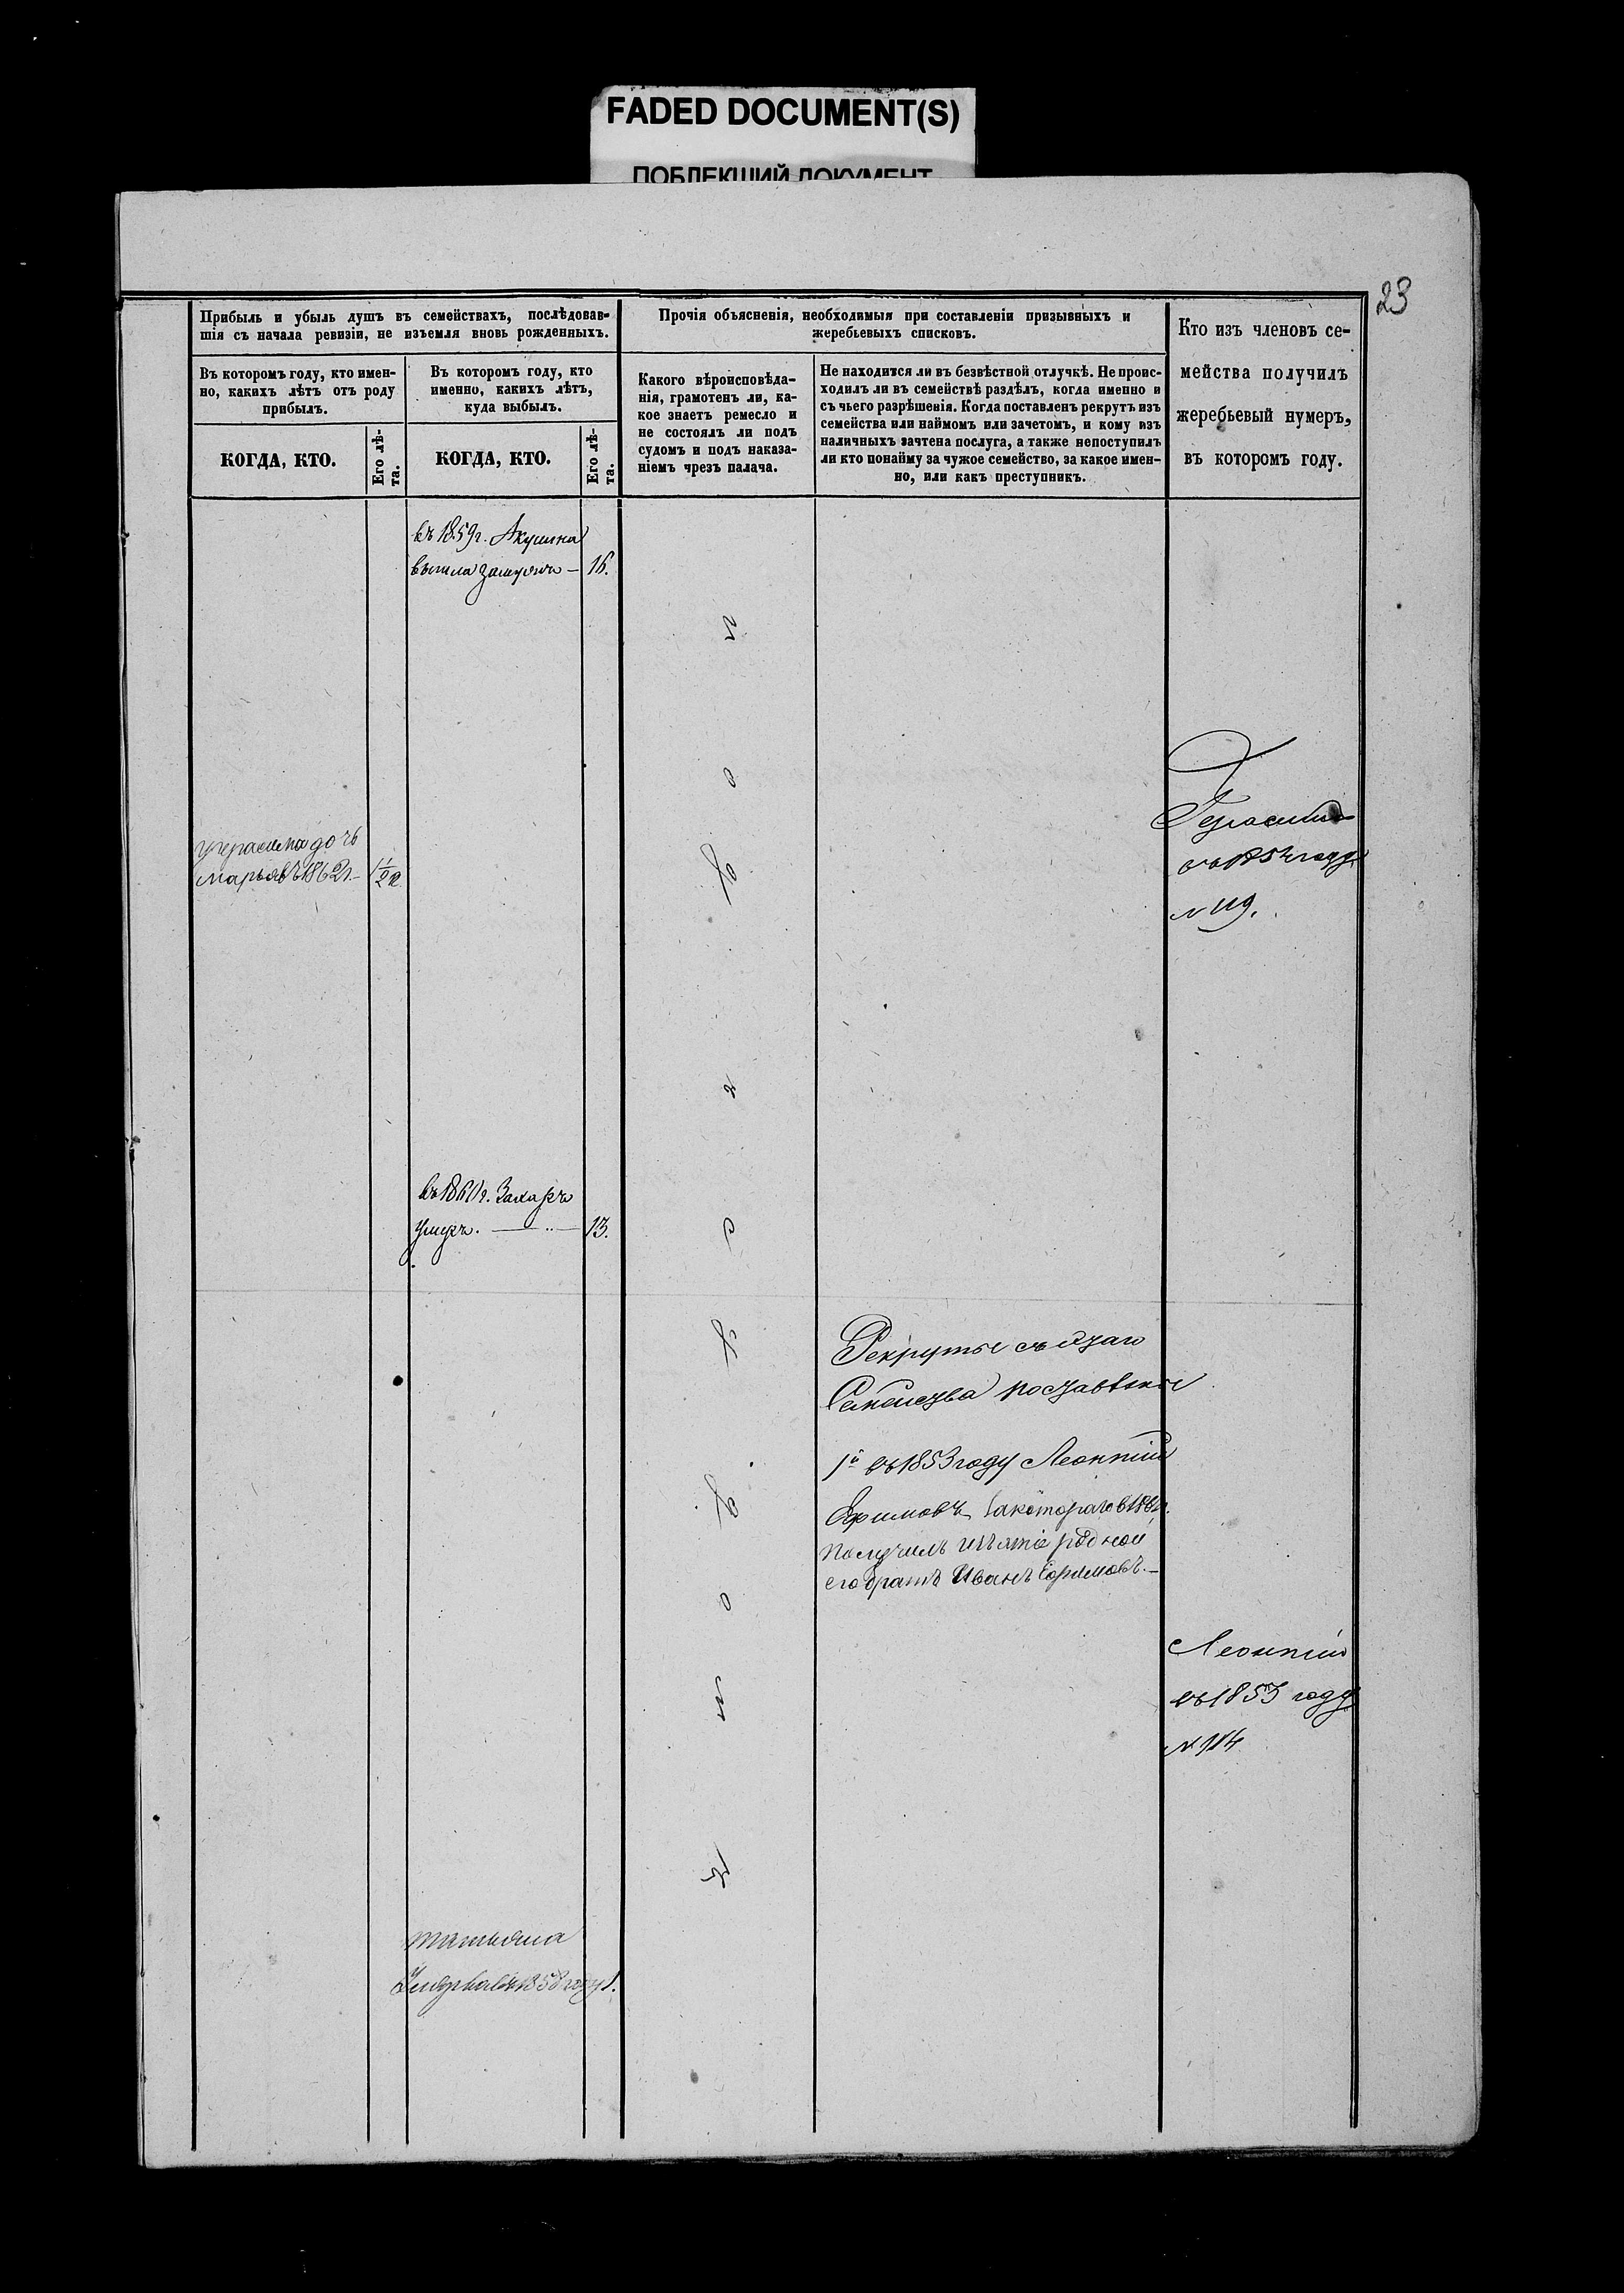 FADED DOCUMENT(S)
ПОБЛЕКШИЙ ДОКУМЕНТ
23
Прибыль и убыль душъ въ семействахъ, послѣдовав-
шія съ начала ревизіи, не изъемля вновь рожденныхъ.
Въ которомъ году, кто имен-
но, какихъ лѣтъ отъ роду
прибылъ.
КОГДА, КТО.
Его лѣ-
та.
Въ которомъ году, кто
именно, какихъ лѣтъ,
куда выбылъ.
КОГДА, КТО.
Его лѣ-
та.
Прочія объясненія, необходимыя при составленіи призывныхъ и
жеребьевыхъ списковъ.
Какого вѣроисповѣда-
нія, грамотенъ ли, ка-
кое знаетъ ремесло и
не состоялъ ли подъ
судомъ и подъ наказа-
ніемъ чрезъ палача.
Не находится ли въ безвѣстной отлучкѣ. Не проис-
ходилъ ли въ семействѣ раздѣлъ, когда именно и
съ чьего разрѣшенія. Когда поставленъ рекрутъ изъ
семейства или наймомъ или зачетомъ, и кому изъ
наличныхъ зачтена послуга, а также непоступилъ
ли кто понайму за чужое семейство, за какое имен-
но, или какъ преступникъ.
Кто изъ членовъ се-
мейства получилъ
жеребьевый нумеръ,
въ которомъ году.
въ 1859г. Акулина
вышла замужъ — 16.
Герасимъ
въ 1854 году
№ 119.
у герасима дочь
марья въ 1862г. — 1/2
въ 1860г. Захаръ
умеръ. — 13.
Рекруты съ сего
Семейства поставлены
1й въ 1853 году Леонтій
Ефимовъ за котораго в
получилъ родной
его братъ Иванъ Ефимовъ. —
Леонтій
въ 1853 году
№ 184
татьяна
умерла въ 1858 году